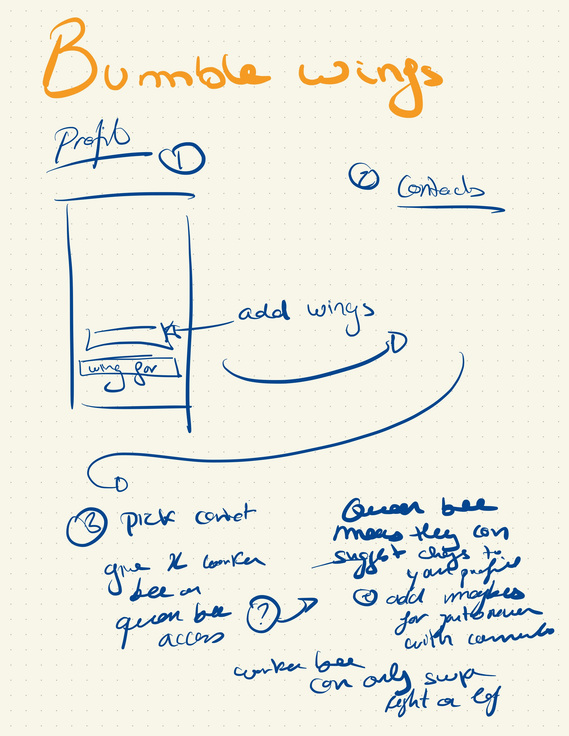 Bumble wings
Profile
1
2 Contacts
add wings
wing for
3 pick contact
give x worker
bee or
queen bee
access
?
Queen bee
means they can
suggest chngs to
your profile
2 add maybes
for
with comments
worker bee
can only swipe
right or lef